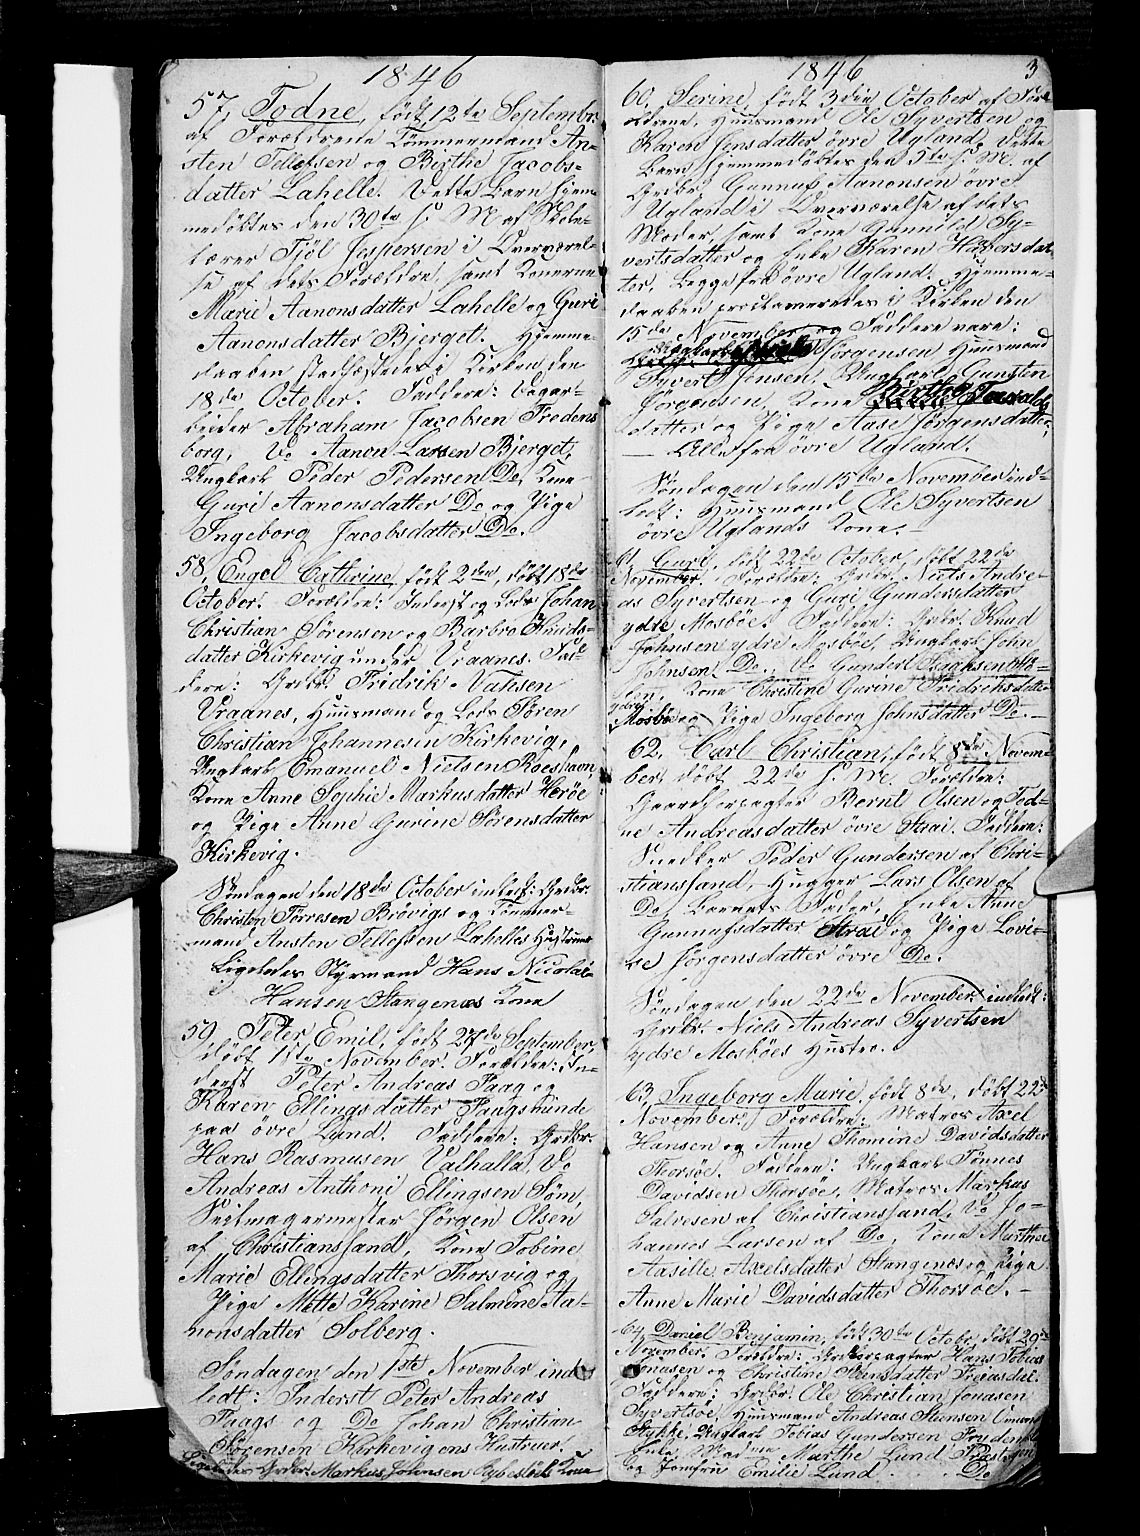 1846
57, Todne, født 12te Septembr.
af Forældrene Tømmermand An-
sten Tellefsen og Birthe Jacobs-
datter Lahelle. Dette Barn hjem-
medøbtes den 30te s. M. af Skole-
lærer Fjöl Jespersen i Overværel-
se af dets Forældre, samt Konerne
Marie Aanonsdatter Lahelle og Guri
Aanonsdatter Bjerget. Hjemme-
daaben stadfæstedes i Kirken den
18de October. Faddere: Dagar-
beider Abraham Jacobsen Fredens
borg, Do Aanon Larsen Bjerget,
Ungkarl Peder Pedersen Do, Kone
Guri Aanonsdatter Do og Pige
Ingeborg Jacobsdatter Do.
58, Engel Cathrine, født 2den, døbt 18de
October. Forældre: Inderst og Lods Johan
Christian Sørensen og Barbro Knuds-
datter Kirkevig under Vraanes. Fad-
dere: Grdbr. Fridrik Natisen
Vraanes, Huusmand og Lods Søren
Christian Johannesen Kirkevig,
Ungkarl Emanuel Nielsen Roeshavn,
Kone Anne Sophie Markusdatter Herøe
og Pige Anne Gurine Sørensdatter
Kirkevig.
Søndagen den 18de October indledt: Grdbr.
Christen Torresen Brøvigs og Tømmer-
mand Ansten Tellefsen Lahelles Hustruer
Ligeledes Styrmand Hans Nicolai
Hansen Stangenæs Kone
59, Peter Emil, født 27de September,
døbt 1ste November. Forældre: In-
derst Peter Andreas Faag og
Karen Ellingsdatter Faagsminde
paa øvre Lund. Faddere: Grdbr.
Hans Rasmusen Valhalla, Do
Andreas Anthoni Ellingsen Søm,
Seilmagermester Jørgen Olsen
af Christianssand, Kone Tobine
Marie Ellingsdatter Thorsvig og
Pige Mette Karine Salmine Aa-
nonsdatter Solberg.
Søndagen den 1ste November ind-
ledt: Inderst Peter Andreas
Faags og Do Johan Christian
Sørensen Kirkevigens Hustruer.
Ligeledes Grdbr. Markus Johnsen Kone
1846 3
60, Serine, født 3die October af For-
ældrene, Huusmand Ole Syvertsen og
Karen Jensdatter øvre Ugland. Dette
Barn hjemmedøbtes den 5te s. M. af
Grdbr. Gunnuf Aanonsen øvre
Ugland i Overværelse af dets
Moder, samt Kone Gunnild Sy-
vertsdatter og Enke Karen
ter, begge fra øvre Ugland. Hjemme-
daaben proclameredes i Kirken den
15de November og Faddere vare:
Ungkarl Jørgensen Huusmand
Syvert Jensen, Ungkarl Gunsten
Jørgensen, Kone Berthe
datter og Pige Aase Jørgensdatter,
— Alle fra øvre Ugland.
Søndagen den 15de November ind-
ledt: Huusmand Ole Syvertsen
øvre Uglands Kone. —
61, Guri, født 22de October, døbt 22de
November. Forældre: Grdbr. Niels Andre-
as Syvertsen og Guri Gundersdatter
ydre Mosbøe. Faddere: Grdbr. Knud
Johnsen ydre Mosbøe, Ungkarl John
Johnsen Do, Do Gunder
Kone Christine Gurine Fredriksdatter
ydre
Mosbøe og Pige Ingeborg Johnsdatter Do. —
62, Carl Christian, født 8de Novem-
ber, døbt 22de s. M. Forældre:
Gaardforpagter Bernt Olsen og Tod-
ne Andreasdatter øvre Strai. Faddere:
Snedker Peder Gundersen af Chri-
stianssand, Hugger Lars Olsen af
Do, Barnets Fader, Enke Anne
Gunnufsdatter Strai og Pige Lovi-
se Jørgensdatter øvre Do.
Søndagen den 22de November indledt:
Grdbr. Niels Andreas Syvertsen
ydre Mosbøes Hustro.
63, Ingeborg Marie, født 8de, døbt 22de
November. Forældre: Matros Axel
Hansen og Anne Thomine Davidsdatter
Thorsøe. Faddere: Ungkarl Tønnes
Davidsen Thorsøe, Matros Markus
Salvesen af Christianssand, Do Jo-
hannes Larsen af Do, Kone Marthe
Aasille Axelsdatter Stangenæs og Pige
Anne Marie Davidsdatter Thorsøe. —
64, Daniel Benjamin, født 30te Octobr. døbt 29de
November. Forældre: Grdforpagter Hans Tobias
Jonasen og Christine
Faddere: Grdbr. Ole Christian Jonasen
Syvertsøe, Huusmand Andreas Steensen
Stykke, Ungkarl Tobias Gundersen
Marthe Lund
og Jomfru Emilie Lund. Do